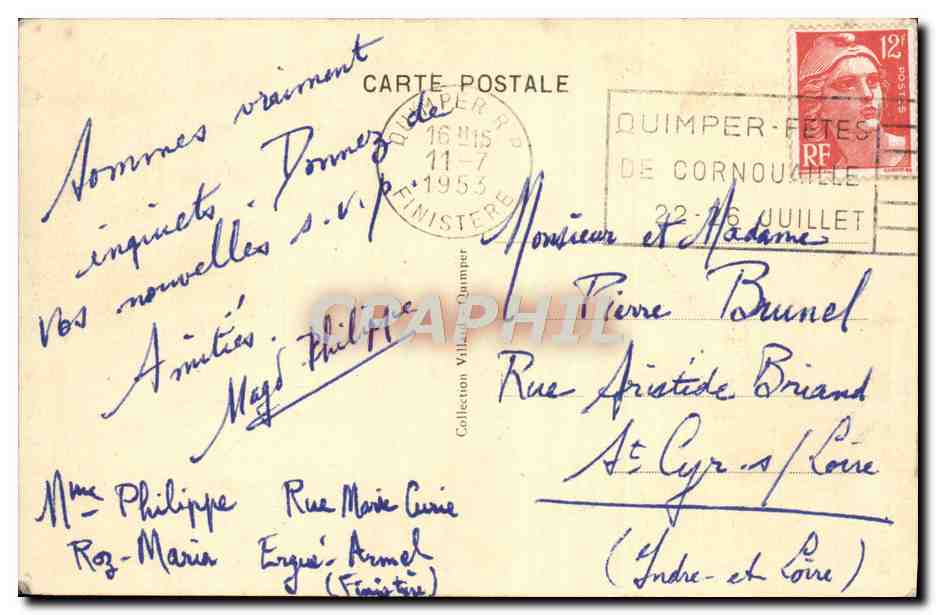 CARTE POSTALE
QUIMPER R.P
16H15
11-7
1953
FINISTERE
QUIMPER-FETES
DE CORNOUAILLE
22-26 JUILLET
12F
POSTES
RF
Sommes vraiment
inquiets. Donnez de
vos nouvelles s.v.p.
Amitiés.
Magd Philippe
Mme Philippe Rue Marie Curie
Roz-Maria Ergué-Armel
(Finistère)
Collection Villard Quimper
Monsieur et Madame
Pierre Brunel
Rue Aristide Briand
St Cyr-s/Loire
(Indre-et Loire)
CPAPHIL